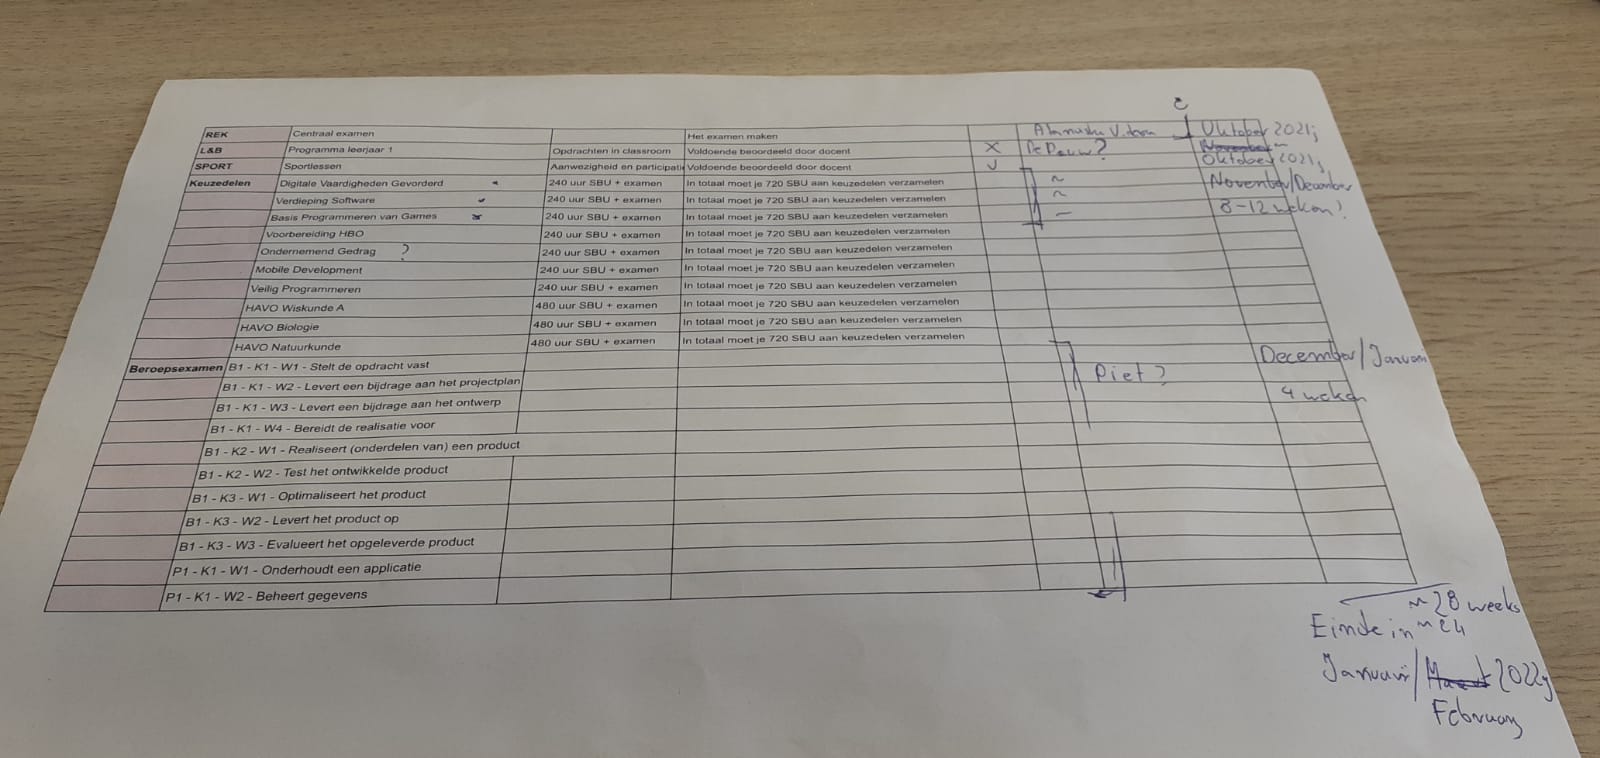 REK Centraal examen Het examen maken Oktober 2021;
L&B Programma leerjaar 1 Opdrachten in classroom Voldoende beoordeeld door docent X De Pauw? November
SPORT Sportlessen Aanwezigheid en participati Voldoende beoordeeld door docent ✓ Oktober 2021;
Keuzedelen Digitale Vaardigheden Gevorderd 240 uur SBU + examen In totaal moet je 720 SBU aan keuzedelen verzamelen ~ November/December
Verdieping Software 240 uur SBU + examen In totaal moet je 720 SBU aan keuzedelen verzamelen ~
Basis Programmeren van Games 240 uur SBU + examen In totaal moet je 720 SBU aan keuzedelen verzamelen – 8-12 weken?
Voorbereiding HBO 240 uur SBU + examen In totaal moet je 720 SBU aan keuzedelen verzamelen
Ondernemend Gedrag ? 240 uur SBU + examen In totaal moet je 720 SBU aan keuzedelen verzamelen
Mobile Development 240 uur SBU + examen In totaal moet je 720 SBU aan keuzedelen verzamelen
Veilig Programmeren 240 uur SBU + examen In totaal moet je 720 SBU aan keuzedelen verzamelen
HAVO Wiskunde A 480 uur SBU + examen In totaal moet je 720 SBU aan keuzedelen verzamelen
HAVO Biologie 480 uur SBU + examen In totaal moet je 720 SBU aan keuzedelen verzamelen
HAVO Natuurkunde 480 uur SBU + examen In totaal moet je 720 SBU aan keuzedelen verzamelen
Beroepsexamen B1 - K1 - W1 - Stelt de opdracht vast Piet? December/Januari
B1 - K1 - W2 - Levert een bijdrage aan het projectplan 4 weken
B1 - K1 - W3 - Levert een bijdrage aan het ontwerp
B1 - K1 - W4 - Bereidt de realisatie voor
B1 - K2 - W1 - Realiseert (onderdelen van) een product
B1 - K2 - W2 - Test het ontwikkelde product
B1 - K3 - W1 - Optimaliseert het product
B1 - K3 - W2 - Levert het product op
B1 - K3 - W3 - Evalueert het opgeleverde product
P1 - K1 - W1 - Onderhoudt een applicatie
P1 - K1 - W2 - Beheert gegevens
~28 weeks
Einde in ~24
Januari/Maart 2022;
February